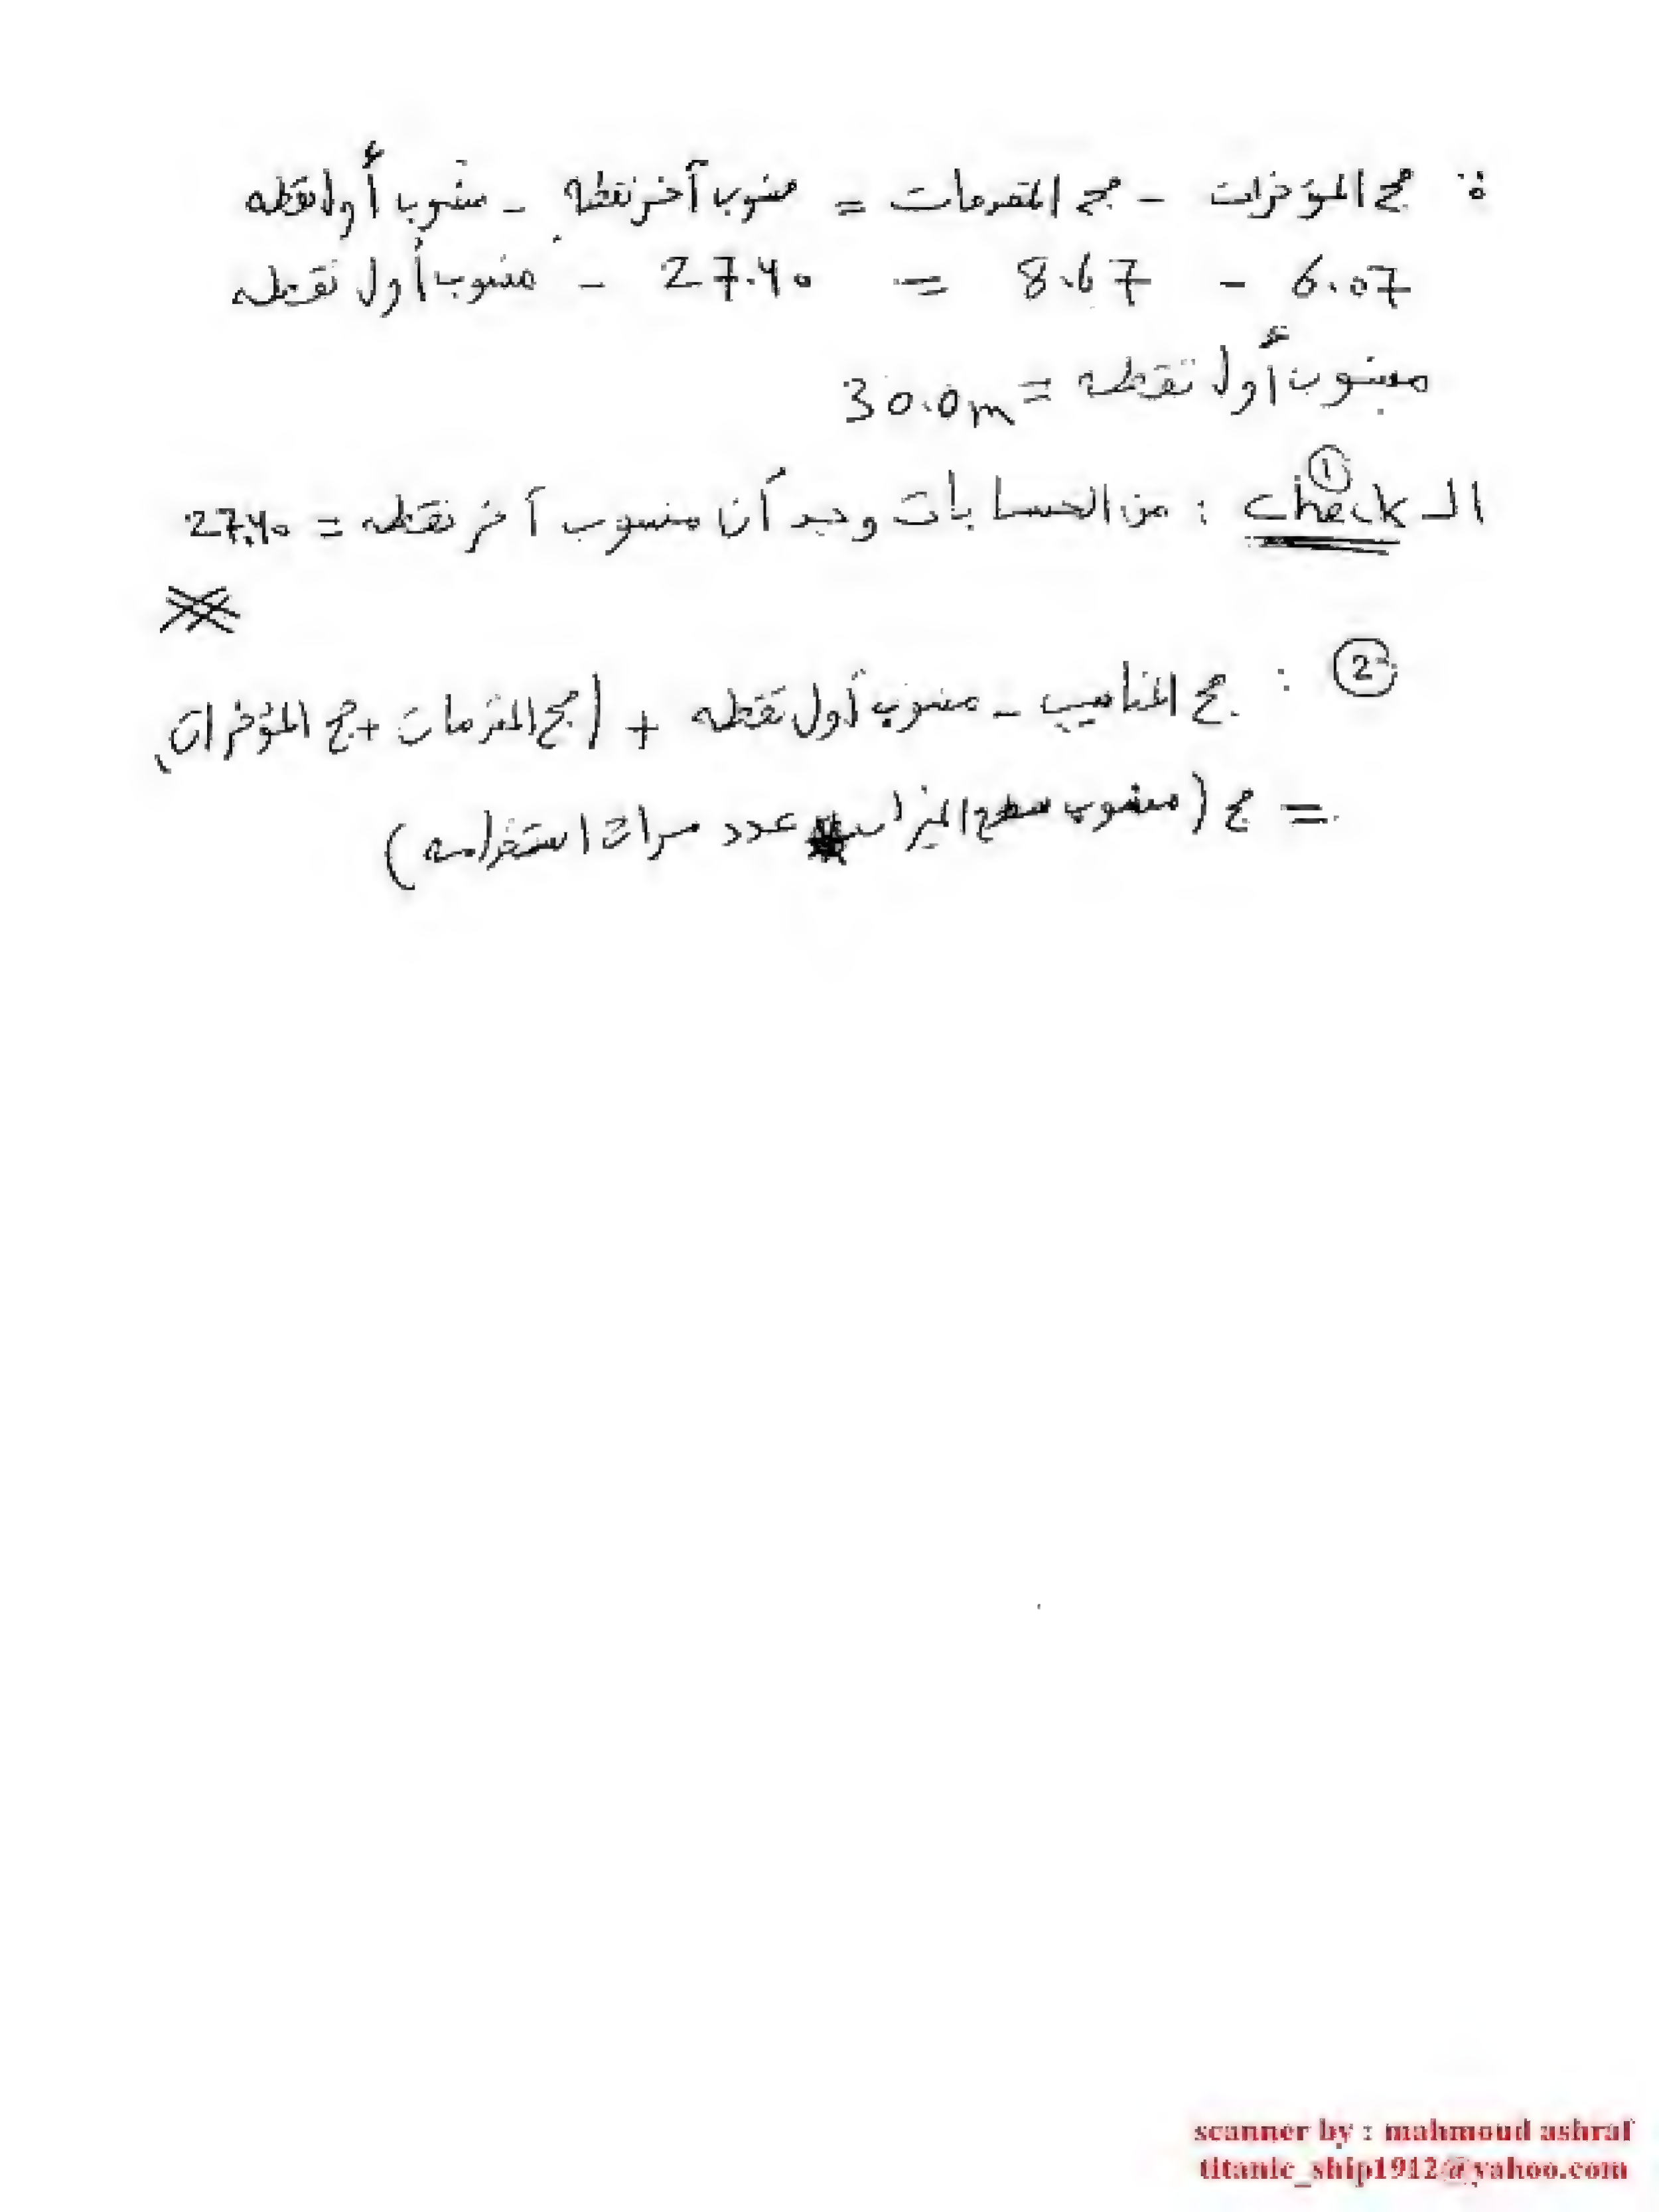 ∵ مج المؤخرات - مج المقدمات = منسوب آخر نقطه - منسوب أول نقطه
6.07 - 8.67 = 27.40 - منسوب أول نقطه
منسوب أول نقطه = 30.0m
الـ check ① : من الحسابات وجد أن منسوب آخر نقطه = 27.40
② : مج المناسيب - منسوب أول نقطه + (مج المقدمات + مج المؤخرات)
= مج (منسوب سطح الميزان * عدد مرات استخدامه)
scanner by : mahmoud ashraf
titanic_ship1912@yahoo.com